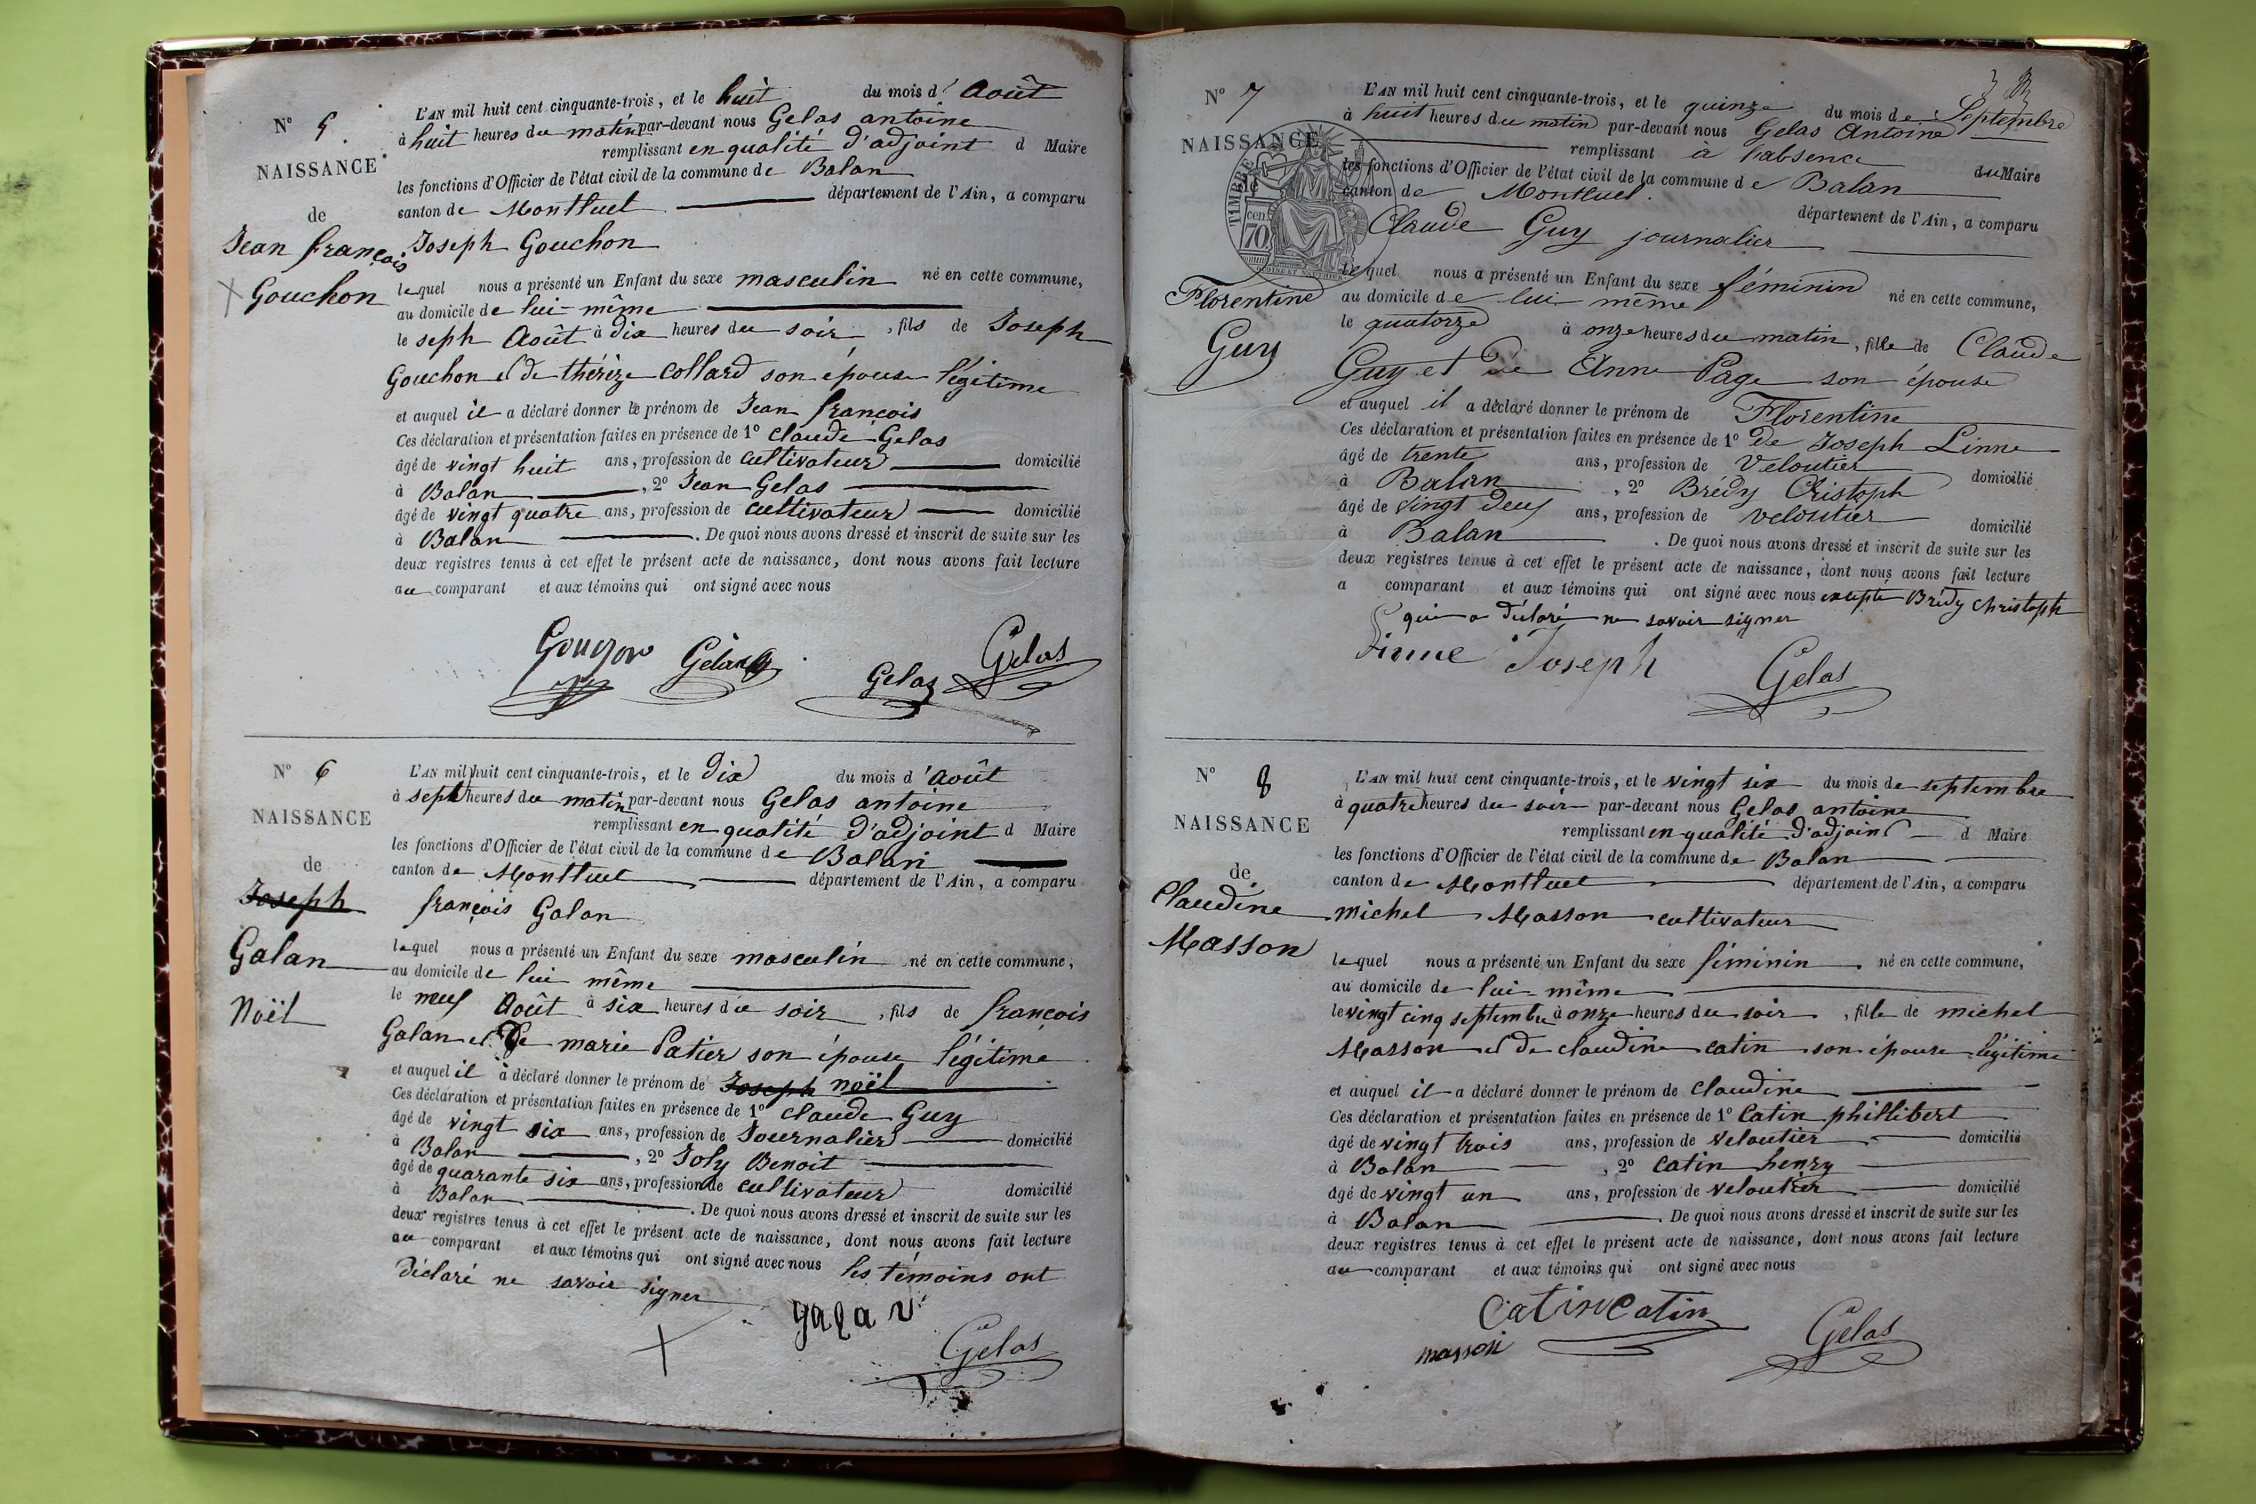 N° 5
NAISSANCE
de
Jean françois
Gouchon
L'AN mil huit cent cinquante-trois, et le huit du mois d' Août
à huit heures du matin par-devant nous Gelas antoine
remplissant en qualité d'adjoint d Maire
les fonctions d'Officier de l'état civil de la commune de Balan
canton de Montluel département de l'Ain, a comparu
Joseph Gouchon
lequel nous a présenté un Enfant du sexe masculin né en cette commune,
au domicile de lui-même
le seph Août à dix heures du soir, fils de Joseph
Gouchon et de thérèze Collard son épouse légitime
et auquel il a déclaré donner le prénom de Jean françois
Ces déclaration et présentation faites en présence de 1° Claude Gelas
âgé de vingt huit ans, profession de Cultivateur domicilié
à Balan, 2° Jean Gelas
âgé de vingt quatre ans, profession de cultivateur domicilié
à Balan. De quoi nous avons dressé et inscrit de suite sur les
deux registres tenus à cet effet le présent acte de naissance, dont nous avons fait lecture
au comparant et aux témoins qui ont signé avec nous
Gelas Gelas
N° 6
NAISSANCE
de
Joseph
Galan
Noël
L'AN mil huit cent cinquante-trois, et le Dix du mois d'août
à sept heures du matin par-devant nous Gelas antoine
remplissant en qualité d'adjoint d Maire
les fonctions d'Officier de l'état civil de la commune de Balan
canton de Montluel département de l'Ain, a comparu
françois Galan
lequel nous a présenté un Enfant du sexe masculin né en cette commune,
au domicile de lui même
le neuf Août à six heures du soir, fils de françois
Galan et De marie Patier son épouse légitime
et auquel il a déclaré donner le prénom de Joseph noël
Ces déclaration et présentation faites en présence de 1° Claude Guy
âgé de vingt six ans, profession de Journalier domicilié
à Balan, 2° Joly Benoit
âgé de quarante six ans, profession de cultivateur domicilié
à Balan. De quoi nous avons dressé et inscrit de suite sur les
deux registres tenus à cet effet le présent acte de naissance, dont nous avons fait lecture
au comparant et aux témoins qui ont signé avec nous les témoins ont
Déclaré ne savoir signer
galan
Gelas
N° 7
NAISSANCE
TIMBRE
70 cen
Florentine
Guy
L'AN mil huit cent cinquante-trois, et le quinze du mois de Septembre
à huit heures du matin par-devant nous Gelas Antoine
remplissant à l'absence du Maire
les fonctions d'Officier de l'état civil de la commune de Balan
canton de Montluel. département de l'Ain, a comparu
Claude Guy journalier
lequel nous a présenté un Enfant du sexe féminin né en cette commune,
au domicile de lui même
le quatorze à onze heures du matin, fille de Claude
Guy et De Anne Page son épouse
et auquel il a déclaré donner le prénom de Florentine
Ces déclaration et présentation faites en présence de 1° de Joseph Linne
âgé de trente ans, profession de Veloutier domicilié
à Balan, 2° Brédy Cristoph
âgé de vingt deux ans, profession de veloutier domicilié
à Balan. De quoi nous avons dressé et inscrit de suite sur les
deux registres tenus à cet effet le présent acte de naissance, dont nous avons fait lecture
a comparant et aux témoins qui ont signé avec nous excepté Brédy Christoph
qui a déclaré ne savoir signer
Linne Joseph Gelas
N° 8
NAISSANCE
de
Claudine
Masson
L'AN mil huit cent cinquante-trois, et le vingt six du mois de septembre
à quatre heures du soir par-devant nous Gelas antoine
remplissant en qualité d'adjoint d Maire
les fonctions d'Officier de l'état civil de la commune de Balan
canton de Montluel département de l'Ain, a comparu
michel Masson cultivateur
lequel nous a présenté un Enfant du sexe féminin né en cette commune,
au domicile de lui-même
le vingt cinq septembre à onze heures du soir, fille de michel
Masson et de claudine catin son épouse légitime
et auquel il a déclaré donner le prénom de claudine
Ces déclaration et présentation faites en présence de 1° Catin phillibert
âgé de vingt trois ans, profession de veloutier domicilié
à Balan, 2° Catin henry
âgé de vingt un ans, profession de veloutier domicilié
à Balan. De quoi nous avons dressé et inscrit de suite sur les
deux registres tenus à cet effet le présent acte de naissance, dont nous avons fait lecture
au comparant et aux témoins qui ont signé avec nous
Catin Catin
masson Gelas